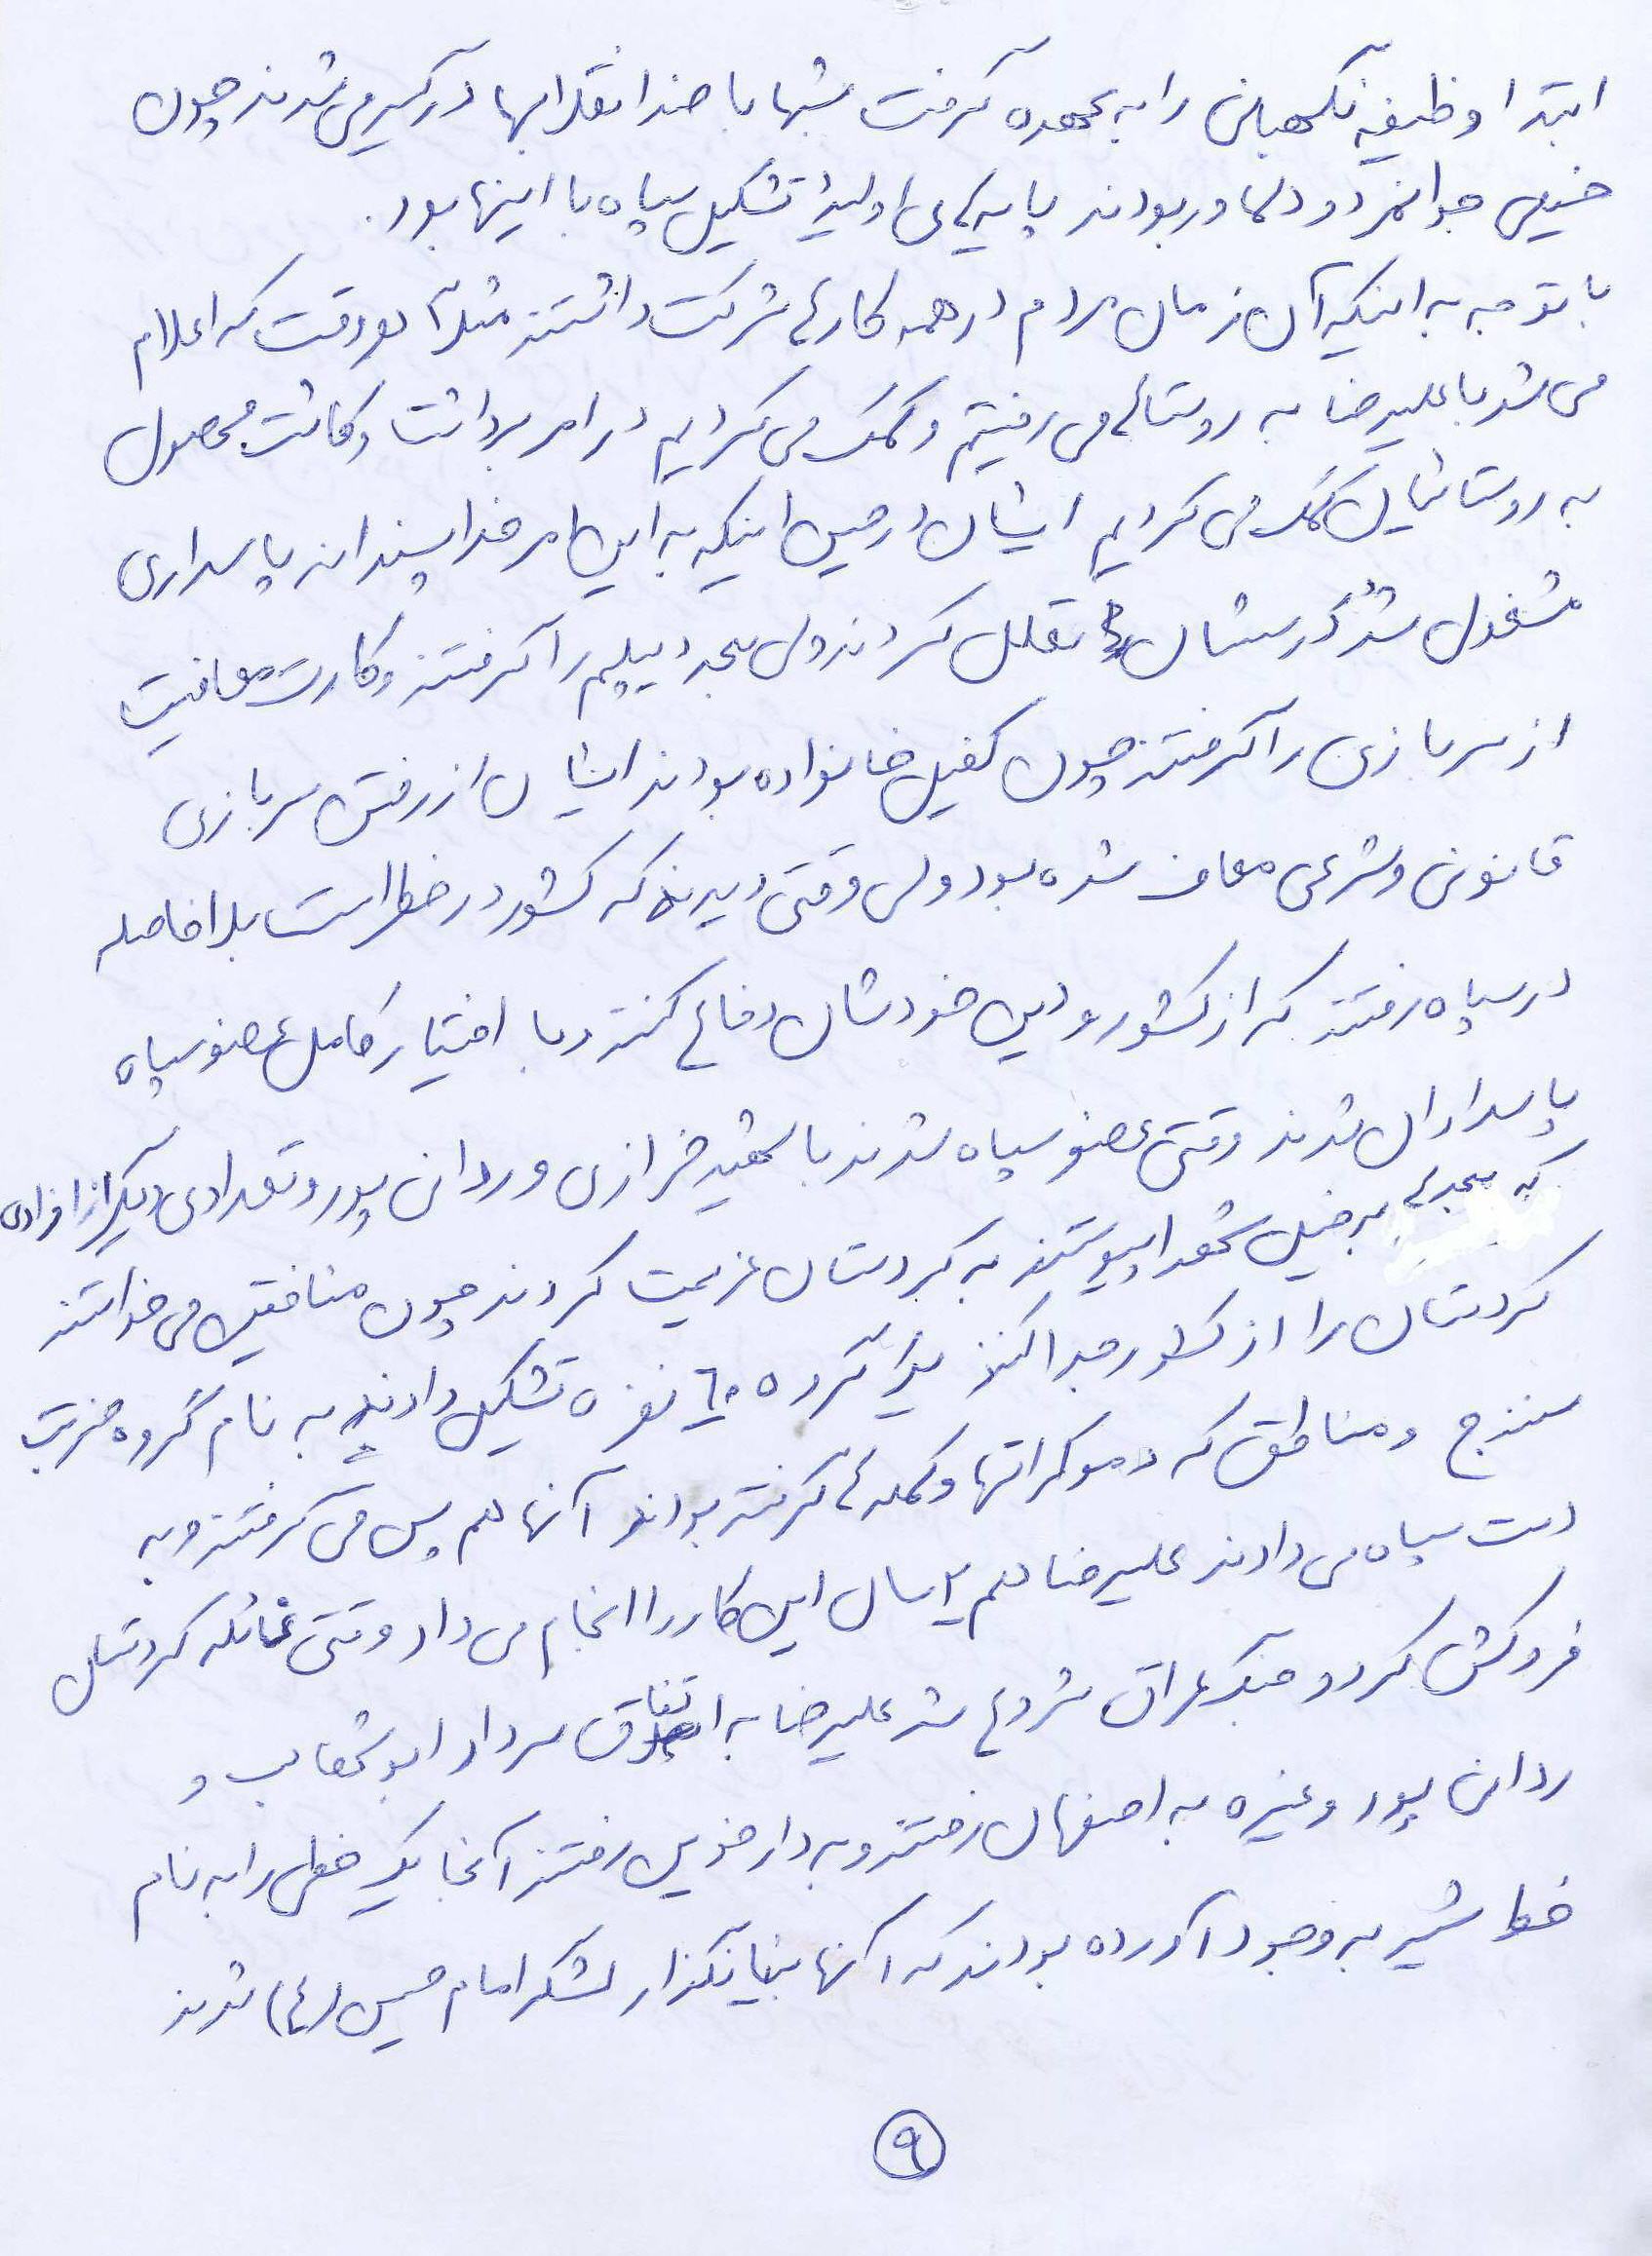 ابتدا وظیفه نگهبانی را به عهده گرفت شبها با ضد انقلابها درگیر می شدند چون
خیلی جوانمرد و دلاور بودند پایه های اولیهٔ تشکیل سپاه با اینها بود.
با توجه به اینکه آن زمان مردم در همه کارها شرکت داشتند مثلاً هر وقت که اعلام
می شد با علیرضا به روستاها می رفتیم و کمک می کردیم در امر برداشت و کاشت محصول
به روستائیان کمک می کردیم ایشان در حین اینکه به این امر خداپسندانه پاسداری
مشغول شد درسشان تعلل کردند ولی بعد دیپلم را گرفتند و کارت معافیت
از سربازی را گرفتند چون کفیل خانواده بودند ایشان از رفتن سربازی
قانونی و شرعی معاف شده بود ولی وقتی دیدند که کشور در خطر است بلافاصله
در سپاه رفتند که از کشور و دین خودشان دفاع کنند و با اختیار کامل عضو سپاه
پاسداران شدند وقتی عضو سپاه شدند با شهید خرازی و ردانی پور و تعدادی دیگر از افرادی
که بعدها به خیل شهدا پیوستند به کردستان عزیمت کردند چون منافقین می خواستند
کردستان را از کشور جدا کنند یک گروه ۶۰ نفره تشکیل دادند به نام گروه ضربت
سنندج و مناطق که دموکراتها و کمله ها گرفته بودند آنها هم پس می گرفتند و به
دست سپاه می دادند علیرضا هم ۲ سال این کار را انجام می داد وقتی غائله کردستان
فروکش کرد و جنگ عراق شروع شد علیرضا به اتفاق سردار ابوشهاب و
ردانی پور و غیره به اصفهان رفتند و به دارخوین رفتند آنجا یک خطی را به نام
خط شیر به وجود آورده بودند که آنها بنیانگذار لشکر امام حسین (ع) شدند
۹